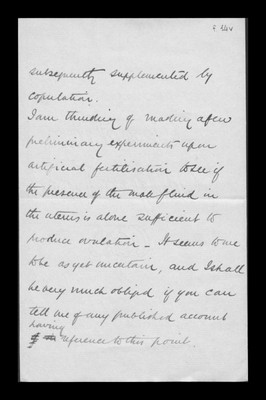 subsequently supplemented by
copulation.
I am thinking of making a few
preliminary experiments upon
artificial fertilisation to see if
the presence of the male fluid in
the uterus is alone sufficient to
produce ovulation – It seems to me
to be as yet uncertain, and I shall
be very much obliged if you can
tell me of any published account
having
reference to this point.